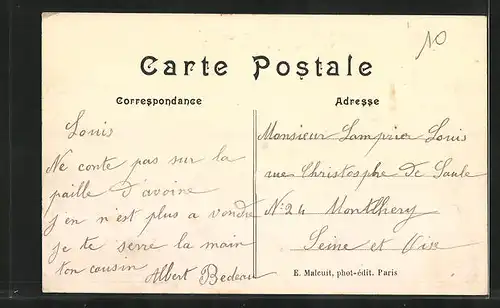 10
Carte Postale
Correspondance
Adresse
Louis
Ne conte pas sur la
paille d'avoine
j'en n'est plus a vendre
je te serre la main
ton cousin Albert Bedeau
Monsieur Lamprier Louis
rue Christosphe De Saule
N: 24 Montlhery
Seine et Oise
E. Malcuit, phot-édit. Paris